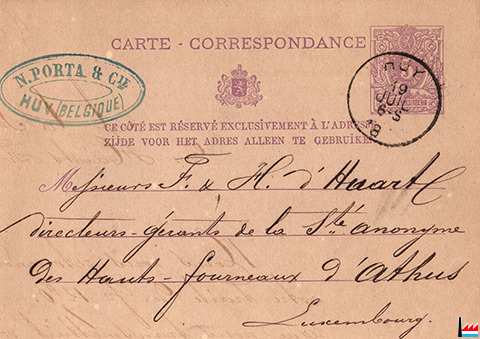 CARTE - CORRESPONDANCE
N. PORTA & Cie
HUY (BELGIQUE)
HUY
19
JUIL
6-S
CE CÔTÉ EST RÉSERVÉ EXCLUSIVEMENT À L'ADRE
ZIJDE VOOR HET ADRES ALLEEN TE GEBRUIKE
Messieurs F. & H. d'Huart
directeurs-gérants de la Sté anonyme
des Hauts-fourneaux d'Athus
Luxembourg.